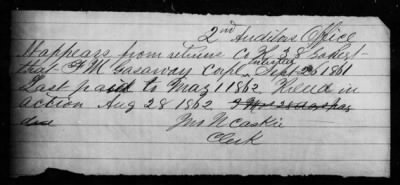 2nd Auditors Office
It appears from returns Co H 38 Ga Regt
that F M Gasaway Corpl enlisted Sept 26 1861
Last paid to May 1 1862 Killed in
action Aug 28 1862
due
Jno N Caskie
Clerk